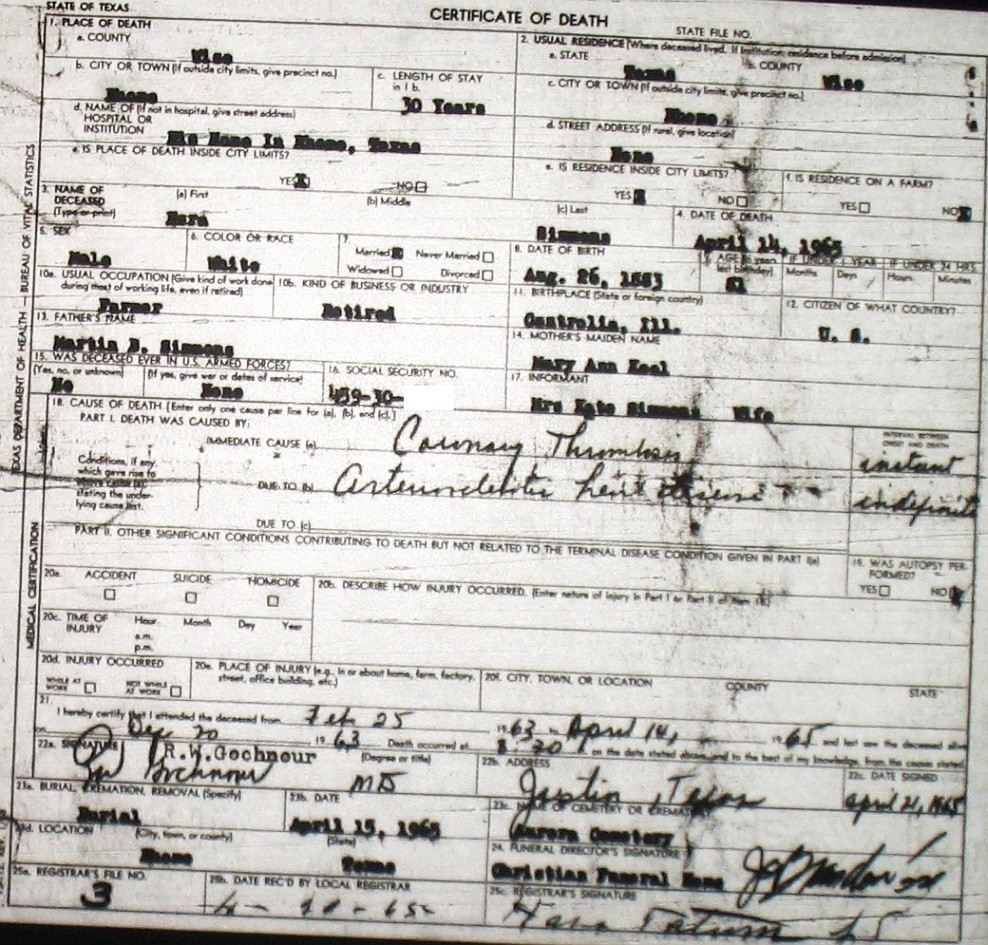 STATE OF TEXAS
CERTIFICATE OF DEATH
STATE FILE NO.
1. PLACE OF DEATH
a. COUNTY
Wise
2. USUAL RESIDENCE (Where deceased lived. If institution: residence before admission)
a. STATE
Texas
b. COUNTY
Wise
b. CITY OR TOWN (If outside city limits, give precinct no.)
Rhome
c. LENGTH OF STAY
in 1 b.
30 Years
c. CITY OR TOWN (If outside city limits, give precinct no.)
Rhome
d. NAME OF (If not in hospital, give street address)
HOSPITAL OR
INSTITUTION
His Home In Rhome, Texas
d. STREET ADDRESS (If rural, give location)
None
e. IS PLACE OF DEATH INSIDE CITY LIMITS?
YES X NO
e. IS RESIDENCE INSIDE CITY LIMITS?
YES NO
f. IS RESIDENCE ON A FARM?
YES NO
3. NAME OF
DECEASED
(Type or print)
(a) First
(b) Middle
(c) Last
Simmons
4. DATE OF DEATH
April 14, 1965
5. SEX
Male
6. COLOR OR RACE
White
7.
Married Never Married
Widowed Divorced
8. DATE OF BIRTH
Aug. 26, 1883
9. AGE (In years
last birthday)
81
IF UNDER 1 YEAR
Months Days
IF UNDER 24 HRS.
Hours Minutes
10a. USUAL OCCUPATION (Give kind of work done
during most of working life, even if retired)
Farmer
10b. KIND OF BUSINESS OR INDUSTRY
Retired
11. BIRTHPLACE (State or foreign country)
Centralia, Ill.
12. CITIZEN OF WHAT COUNTRY?
U. S.
13. FATHER'S NAME
Martin B. Simmons
14. MOTHER'S MAIDEN NAME
Mary Ann
15. WAS DECEASED EVER IN U.S. ARMED FORCES?
(Yes, no, or unknown) (If yes, give war or dates of service)
No None
16. SOCIAL SECURITY NO.
459-30-
17. INFORMANT
Mrs Kate Simmons Wife
18. CAUSE OF DEATH (Enter only one cause per line for (a), (b), and (c).)
PART I. DEATH WAS CAUSED BY:
IMMEDIATE CAUSE (a)
Coronary Thrombosis
INTERVAL BETWEEN
ONSET AND DEATH
instant
Conditions, if any,
which gave rise to
above cause (a),
stating the under-
lying cause last.
DUE TO (b)
Arteriosclerotic heart disease
indefinite
DUE TO (c)
PART II. OTHER SIGNIFICANT CONDITIONS CONTRIBUTING TO DEATH BUT NOT RELATED TO THE TERMINAL DISEASE CONDITION GIVEN IN PART I(a)
19. WAS AUTOPSY PER-
FORMED?
YES NO
20a. ACCIDENT SUICIDE HOMICIDE
20b. DESCRIBE HOW INJURY OCCURRED. (Enter nature of injury in Part I or Part II of item 18.)
20c. TIME OF
INJURY
Hour Month Day Year
a.m.
p.m.
20d. INJURY OCCURRED
WHILE AT
WORK
NOT WHILE
AT WORK
20e. PLACE OF INJURY (e.g., in or about home, farm, factory,
street, office building, etc.)
20f. CITY, TOWN, OR LOCATION
COUNTY
STATE
21.
I hereby certify that I attended the deceased from Feb 25 1963 to April 14, 1965 and last saw the deceased alive
on Dec 20 1963 Death occurred at 8:20 on the date stated above, and to the best of my knowledge, from the causes stated.
22a. SIGNATURE
R.W. Gochnour
(Degree or title)
MD
22b. ADDRESS
Justin, Texas
22c. DATE SIGNED
April 21, 1965
23a. BURIAL, CREMATION, REMOVAL (Specify)
Burial
23b. DATE
April 15, 1965
23c. NAME OF CEMETERY OR CREMATORY
Aurora Cemetery
23d. LOCATION
(City, town, or county)
(State)
Rhome Texas
24. FUNERAL DIRECTOR'S SIGNATURE
Christian Funeral Home
25a. REGISTRAR'S FILE NO.
3
25b. DATE REC'D BY LOCAL REGISTRAR
25c. REGISTRAR'S SIGNATURE
TEXAS DEPARTMENT OF HEALTH — BUREAU OF VITAL STATISTICS
MEDICAL CERTIFICATION